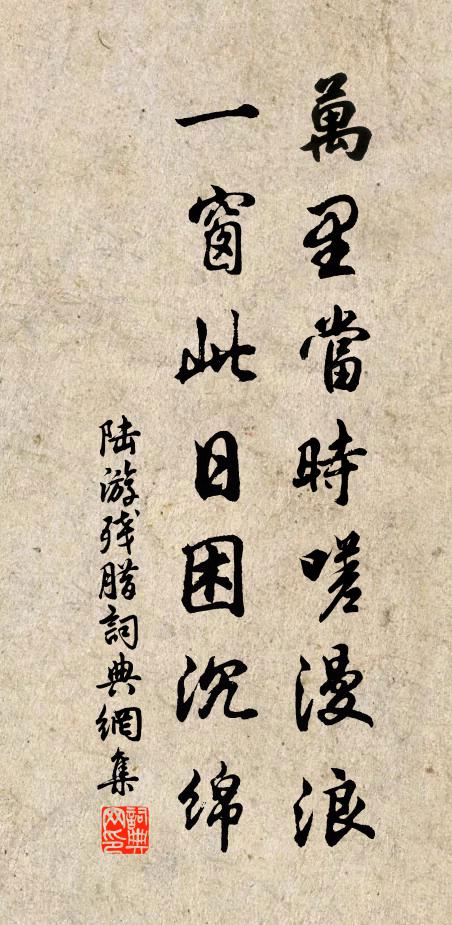 萬里當時嗟漫浪
一窗此日困沉綿
陆游残腊詞典網集
詞典网印